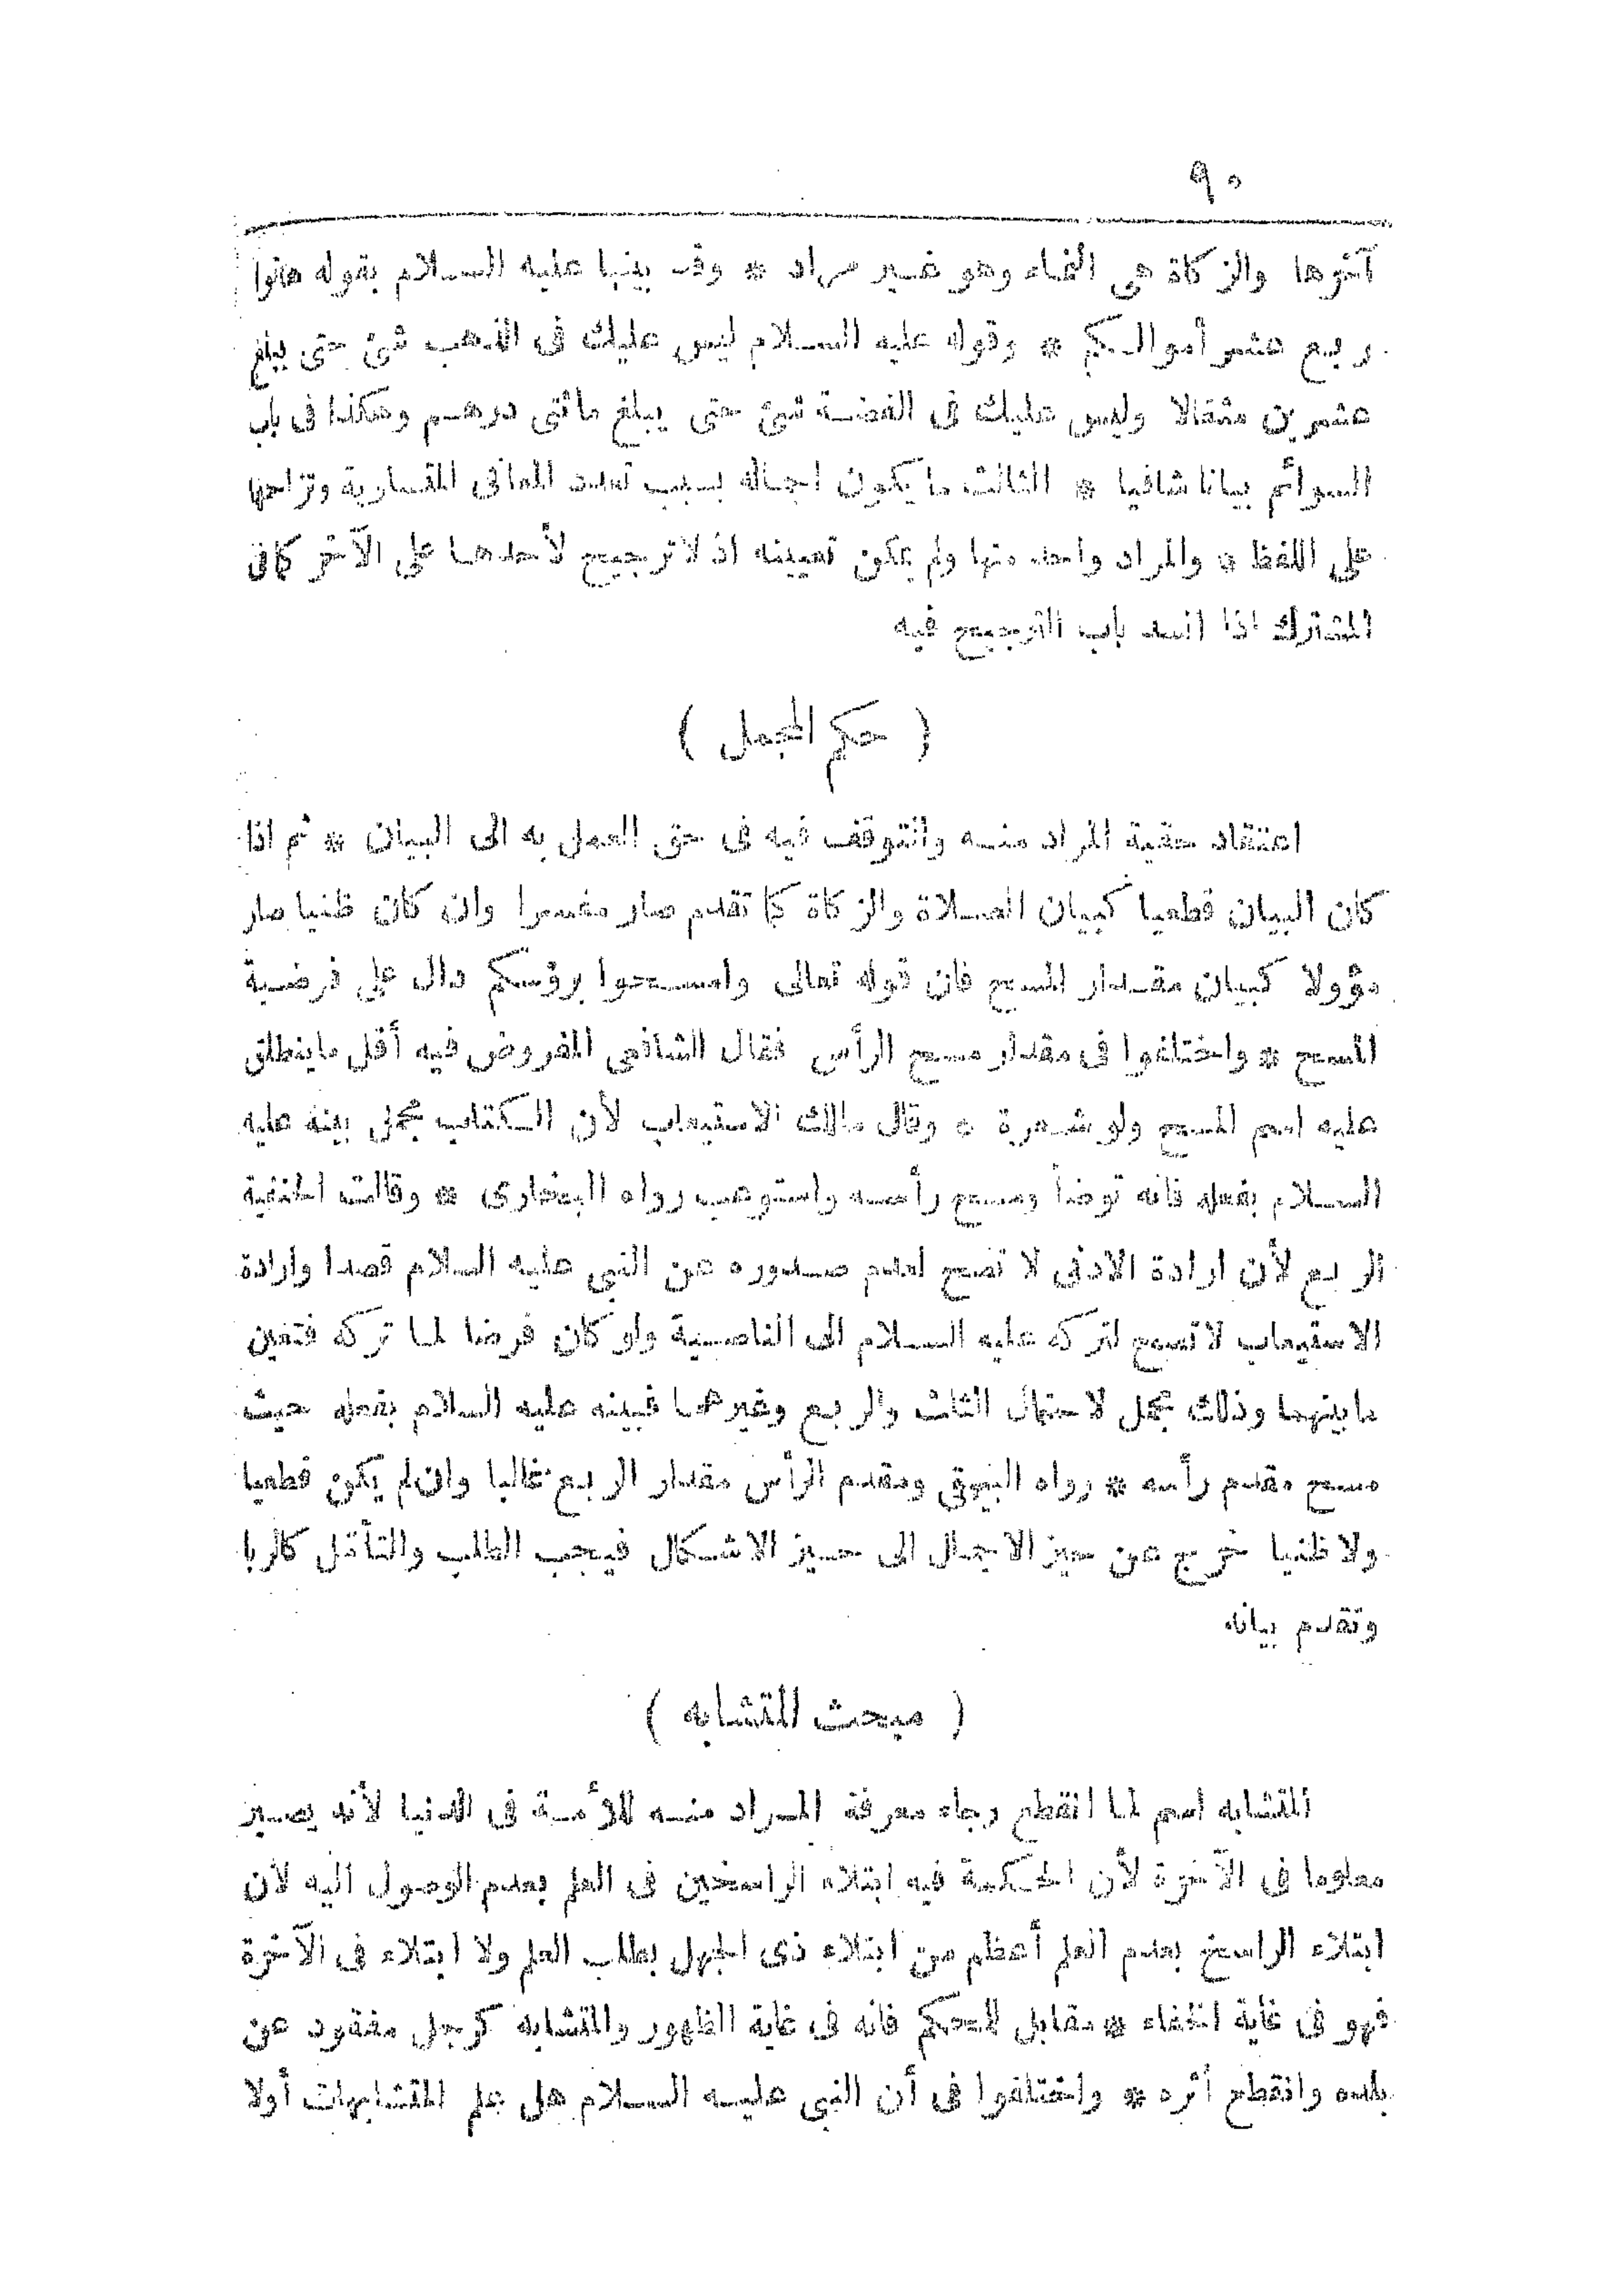 ٩٠
آخرها والزكاة هى النماء وهو غير مراد * وقد بينها عليه السلام بقوله هاتوا
ربع عشر أموالكم * وقوله عليه السلام ليس عليك فى الذهب شئ حتى يبلغ
عشرين مثقالا وليس عليك فى الفضة شئ حتى يبلغ مائتى درهم وهكذا فى باب
السوائم بيانا شافيا * الثالث ما يكون اجماله بسبب تعدد المعانى المتساوية وتزاحمها
على اللفظ * والمراد واحد منها ولم يمكن تعيينه اذ لا ترجيح لأحدها على الآخر كما فى
المشترك اذا انسد باب الترجيح فيه
( حكم المجمل )
اعتقاد حقية المراد منه والتوقف فيه فى حق العمل به الى البيان * ثم اذا
كان البيان قطعيا كبيان الصلاة والزكاة كما تقدم صار مفسرا وان كان ظنيا صار
مؤولا كبيان مقدار المسح فان قوله تعالى وامسحوا برؤسكم دال على فرضية
المسح * واختلفوا فى مقدار مسح الرأس فقال الشافعى المفروض فيه أقل ما ينطلق
عليه اسم المسح ولو شعرة * وقال مالك الاستيعاب لأن الكتاب مجمل بينه عليه
السلام بفعله فانه توضأ ومسح رأسه واستوعب رواه البخارى * وقالت الحنفية
الربع لأن ارادة الادنى لا تصح لعدم صدوره عن النبى عليه السلام قصدا وارادة
الاستيعاب لا تصح لتركه عليه السلام الى الناصية ولو كان فرضا لما تركه فتعين
ما بينهما وذلك مجمل لاحتمال الثلث والربع وغيرهما فبينه عليه السلام بفعله حيث
مسح مقدم رأسه * رواه البيهقى ومقدم الرأس مقدار الربع غالبا وان لم يكن قطعيا
ولا ظنيا خرج عن حيز الاجمال الى حيز الاشكال فيجب الطلب والتأمل كالربا
وتقدم بيانه
( مبحث المتشابه )
المتشابه اسم لما انقطع رجاء معرفة المراد منه للأمة فى الدنيا لأنه يصير
معلوما فى الآخرة لأن الحكمة فيه ابتلاء الراسخين فى العلم بعدم الوصول اليه لأن
ابتلاء الراسخ بعدم العلم أعظم من ابتلاء ذى الجهل بطلب العلم ولا ابتلاء فى الآخرة
فهو فى غاية الخفاء * مقابل للمحكم فانه فى غاية الظهور والمتشابه كرجل مفقود عن
بلده وانقطع أثره * واختلفوا فى أن النبى عليه السلام هل علم المتشابهات أولا